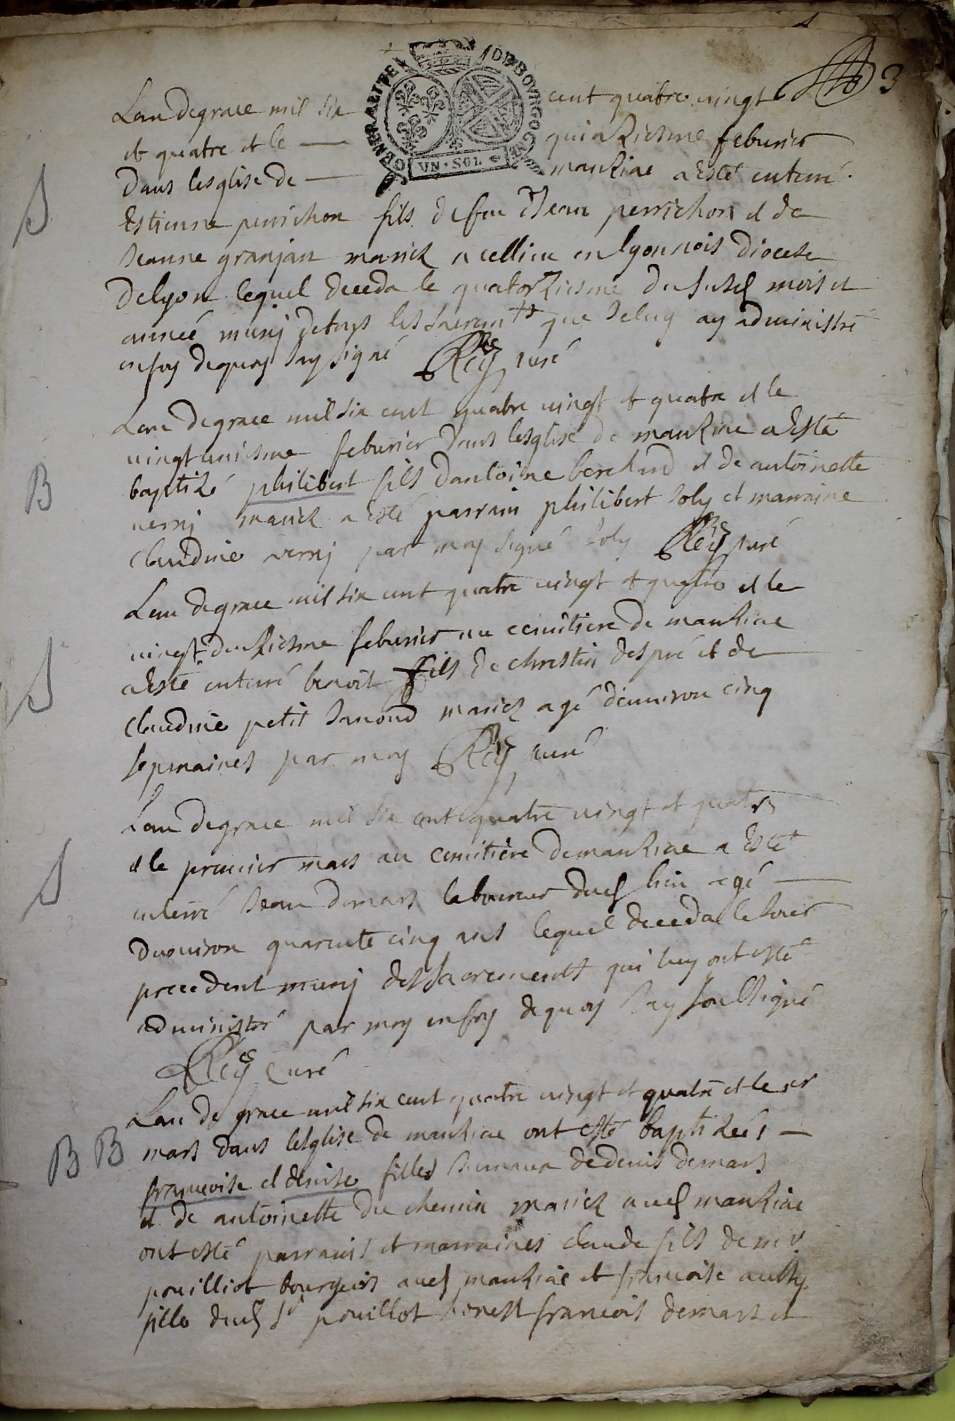 3
GENERALITE DE BOVRGOGNE
VN·SOL
Lan de grace mil six cent quatre vingt
et quatre et le quinziesme februrier
dans lesglise de manziae a esté enterré
Estienne perrichon fils de feu Jean perrichon et de
Jeanne granjan mariez a cellieu en lyonnois diocese
de lyon lequel deceda le quatorziesme du susd mois et
année muny de tous les sacremts que je luy ay administré
en foy de quoy jay signé Rey curé
S
Lan de grace mil six cent quatre vingt et quatre et le
vingt uniesme februrier dans lesglise de manziae a esté
baptizé philibert fils dantoine berchud et de antoinette
verny mariez a esté parrain philibert Joly et marraine
claudine verny par moy signé Joly Rey curé
B
Lan de grace mil six cent quatre vingt et quatre et le
vingt deuziesme februrier au cemitiere de manziae
a esté enterré benoit fils de christin despré et de
claudine petit Janond mariez agé denuiron cinq
sepmaines par moy Rey curé
S
Lan de grace mil six cent quatre vingt et quatre
et le premier mars au cemitiere de manziae a esté
enterré Jean demars laboureur dud lieu agé
denuiron quarente cinq ans lequel deceda le jour
precedent muny des sacrements qui luy ont esté
administré par moy en foy de quoy jay soussigné
Rey curé
S
Lan de grace mil six cent quatre vingt et quatre et le
mars dans lesglise de manziae ont esté baptizées
francoise et denise filles de denis demars
et de antoinette du chemin mariez aud manziae
ont esté parrains et marraines claude fils de
pouilliot bourgeois aud manziae et francoise aussy
fille dud Sr pouillot francois demars et
B B